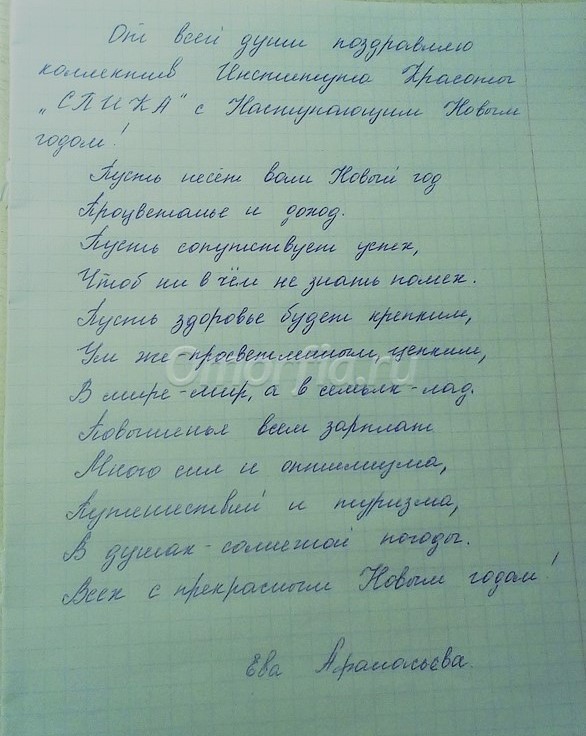 От всей души поздравляю
коллектив Института Красоты
„СПИКА" с Наступающим Новым
годом!
Пусть несёт вам Новый год
Процветанье и доход.
Пусть сопутствует успех,
Чтоб ни в чём не знать помех.
Пусть здоровье будет крепким,
Ум же - просветленным, цепким,
Omorfia.ru
В мире - мир, а в семьях - лад.
Повышенья всем зарплат
Много сил и оптимизма,
Путешествий и туризма,
В душах - солнечной погоды.
Всех с прекрасным Новым годом!
Ева